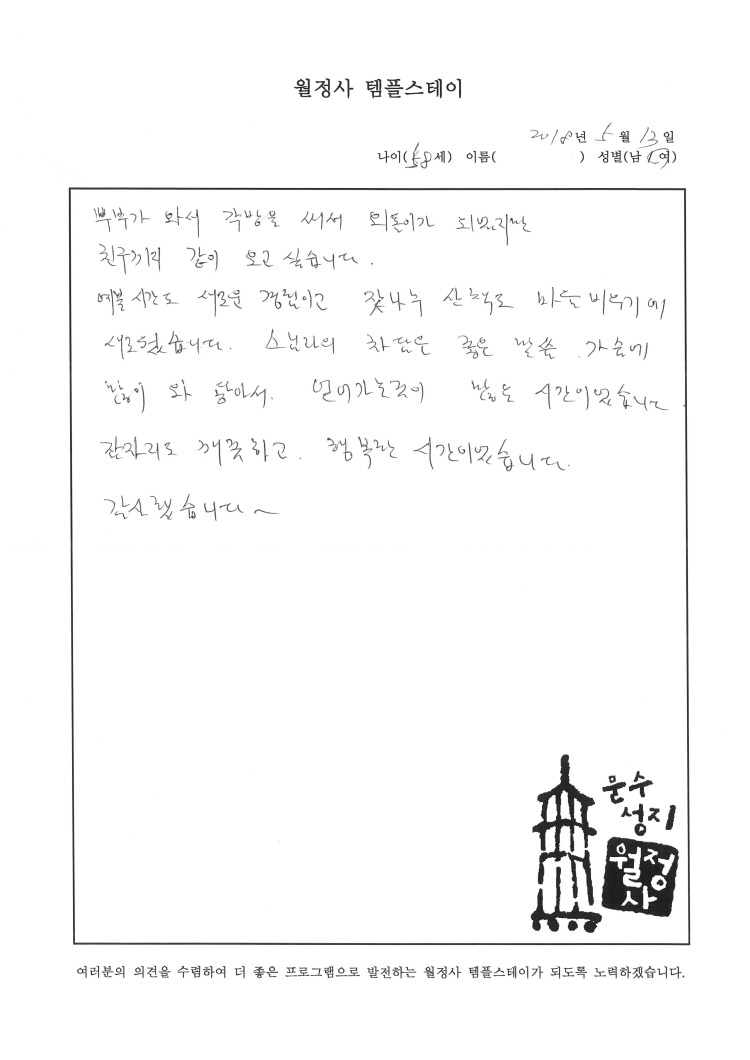 월정사 템플스테이
2018년 5월 13일
나이(58세) 이름( ) 성별(남 여)
부부가 와서 각방을 써서 외톨이가 되었지만
친구끼리 같이 오고 싶습니다.
예불 시간도 새로운 경험이고 잣나무 산책도 마음 비우기에
새로웠습니다. 스님과의 차담은 좋은 말씀 가슴에
많이 와 닿아서. 얻어가는것이 많은 시간이었습니다.
잠자리도 깨끗하고. 행복한 시간이었습니다.
감사했습니다~
문수
성지
월정
사
여러분의 의견을 수렴하여 더 좋은 프로그램으로 발전하는 월정사 템플스테이가 되도록 노력하겠습니다.